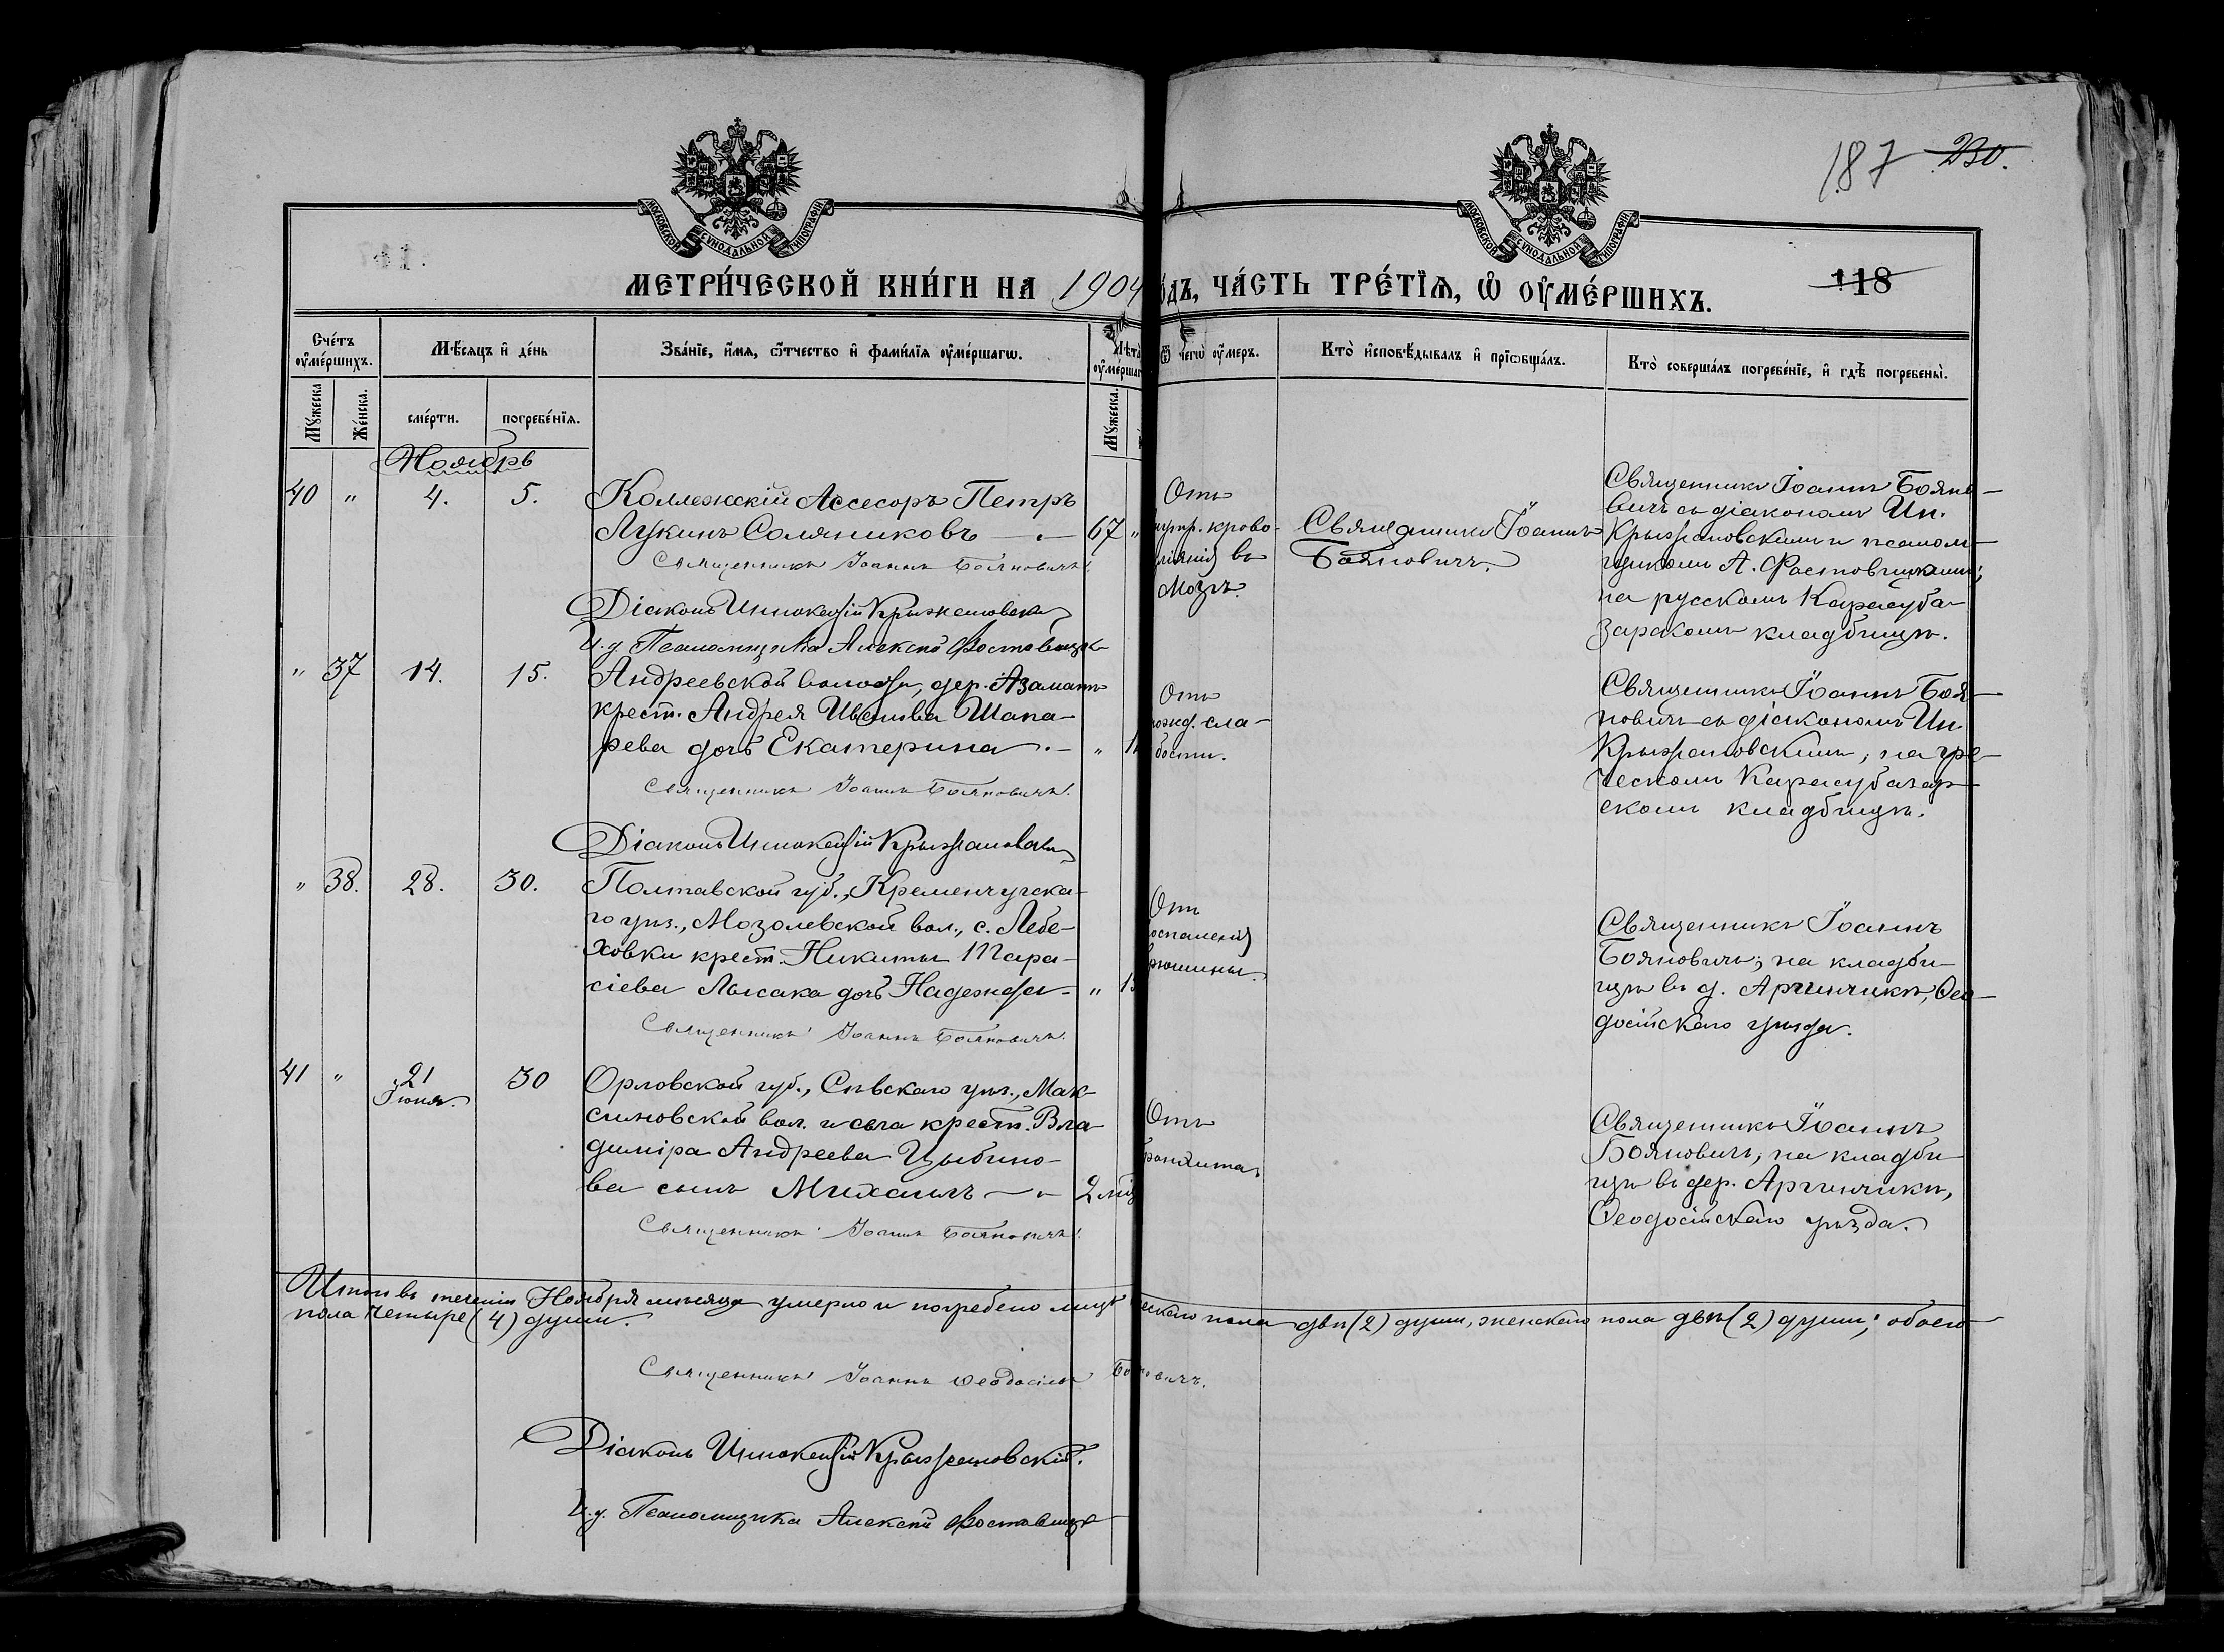 187 230.
МОСКОВСКОЙ СУНОДАЛЬНОЙ ТИПОГРАФІИ
МОСКОВСКОЙ СУНОДАЛЬНОЙ ТИПОГРАФІИ
МЕТРИ́ЧЕСКОЙ КНИ́ГИ НА 1904 ѻ́дъ, ЧА́СТЬ ТРЕ́ТЇѦ, Ѿ ОУ҆МЕ́РШИХЪ.
118
Сче́тъ оу҆ме́ршихъ.
Мѣ́сяцъ и҆ де́нь
Зва́нїе, и҆́мя, ѻ҆́тчество и҆ фами́лїя оу҆ме́ршагѡ.
Лѣта оу҆ме́ршаг
Ѿ чегѡ̀ оу҆́меръ.
Кто̀ и҆сповѣ́дывалъ и҆ прїѡбща́лъ.
Кто̀ соверша́лъ погребе́нїе, и҆ гдѣ̀ погребены̀.
Мꙋ́жеска
Же́нска.
сме́рти.
погребе́нїя.
Мꙋ́жеска.
Ноябрь
40 " 4. 5.
Коллежскій Ассесоръ Петръ
Лукинъ Соляниковъ 67 "
Священникъ Іоаннъ Бояновичъ.
Діаконъ Иннокентій Крыжановскій
И.д. Псаломщика Алексѣй Фостовщук
Отъ
внутр. крово-
ліянія въ
мозгъ.
Священникъ Іоаннъ
Бояновичъ.
Священникъ Іоаннъ Бояно-
вичъ съ діакономъ Ин.
Крыжановскимъ и псалом-
щикомъ А. Фостов
на русскомъ Карасуба-
зарскомъ кладбищѣ.
" 37 14. 15.
Андреевской волости, дер. Азаматъ
крест. Андрея Иванова Шапа-
рева дочь Екатерина "
Священникъ Іоаннъ Бояновичъ.
Діаконъ Иннокентій Крыжановскій
Отъ
рожд. сла-
бости.
Священникъ Іоаннъ Боя-
новичъ съ діакономъ Ин.
Крыжановскимъ, на гре-
ческомъ Карасубазар-
скомъ кладбищѣ.
" 38. 28. 30.
Полтавской губ., Кременчугска-
го уѣз., Мозолевской вол., с. Лебе-
ховки крест. Никиты Тара-
сіева Лысака дочь Надежда "
Священникъ Іоаннъ Бояновичъ.
Отъ
воспаленія
брюшины.
Священникъ Іоаннъ
Бояновичъ; на кладби-
щѣ въ д. Аргинчикъ, Ѳео-
досійскаго уѣзда.
41 " 21 Іюня. 30
Орловской губ., Сѣвскаго уѣз., Мак-
симовской вол. и села крест. Вла-
диміра Андреева Цыбино-
ва сынъ Михаилъ 2 мѣ
Священникъ Іоаннъ Бояновичъ.
Отъ
бронхита.
Священникъ Іоаннъ
Бояновичъ, на кладби-
щѣ въ дер. Аргинчикъ,
Ѳеодосійскаго уѣзда.
Итого въ теченіи Ноября мѣсяца умерло и погребено лицъ ескаго пола двѣ (2) души, женскаго пола двѣ (2) души; обоего
пола четыре (4) души.
Священникъ Іоаннъ Ѳеодосіевъ Бояновичъ.
Діаконъ Иннокентій Крыжановскій.
И.д. Псаломщика Алексѣй Фостовщук